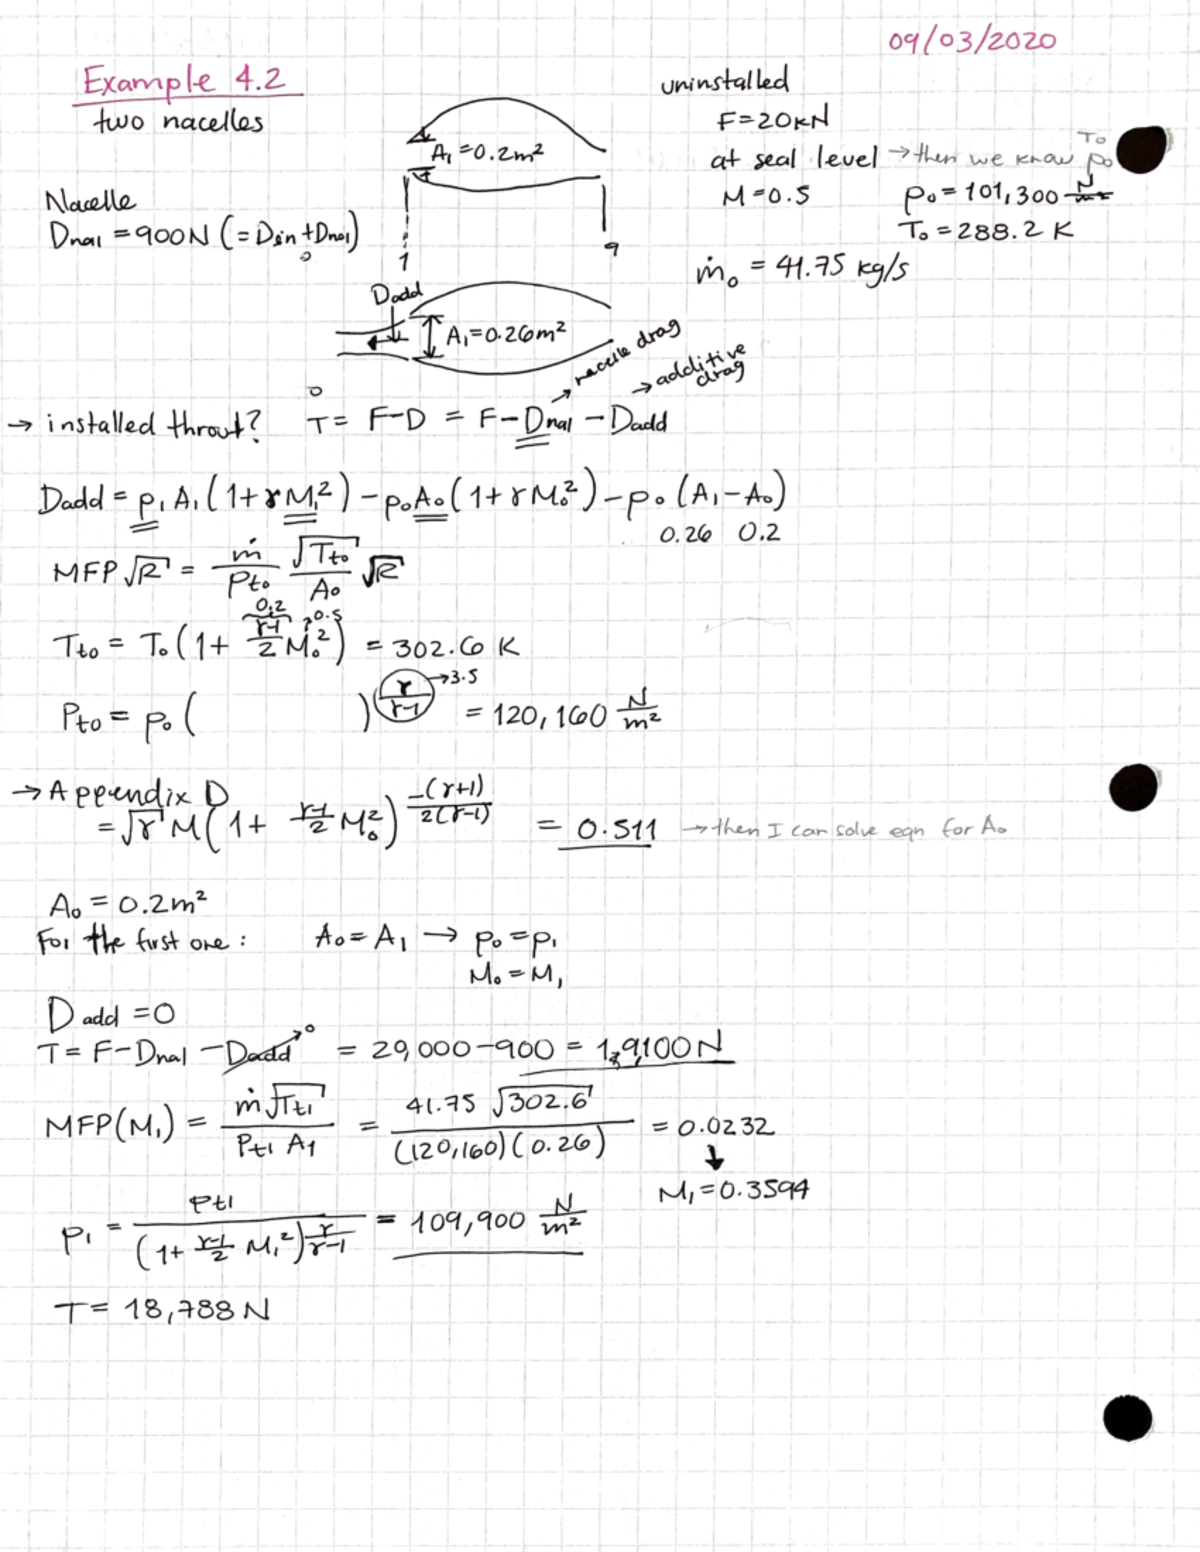 09/03/2020
Example 4.2
two nacelles
uninstalled
F=20KN
at seal level → then we know To po
M=0.5
po = 101,300 N/m²
To = 288.2 K
ṁo = 41.75 kg/s
Nacelle
Dna1 = 900N (= Din + Dno1)
o
A1 = 0.2m²
1
9
Dadd
A1 = 0.26m²
→ nacelle drag
→ additive drag
o
→ installed throut? T = F-D = F-Dna1 - Dadd
Dadd = p1 A1 (1+γM1²) - po Ao (1+γMo²) - po (A1-Ao)
0.26 0.2
MFP√R = ṁ/Pto √Tto/Ao √R
0.2
0.5
Tto = To (1+ γ-1/2 Mo²) = 302.6 K
Pto = po ( ) γ/γ-1 → 3.5 = 120,160 N/m²
→ Appendix D
= √γ M (1+ γ-1/2 Mo²) -(γ+1)/2(γ-1) = 0.511 → then I can solve eqn for Ao
Ao = 0.2m²
For the first one: Ao = A1 → po = p1
Mo = M1
Dadd = 0
T = F-Dna1 - Dadd → o = 20,000-900 = 19,100N
MFP(M1) = ṁ√Tt1 / Pt1 A1 = 41.75 √302.6 / (120,160)(0.26) = 0.0232
↓
M1 = 0.3594
p1 = Pt1 / (1+ γ-1/2 M1²) γ/γ-1 = 109,900 N/m²
T = 18,788 N